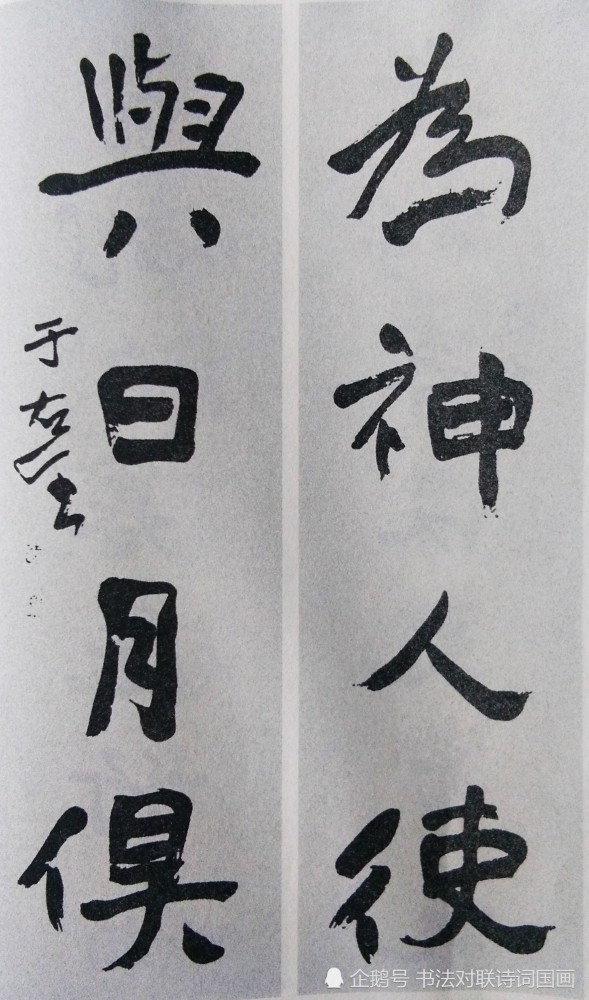 為神人使
與日月俱
于右任
企鹅号 书法对联诗词国画